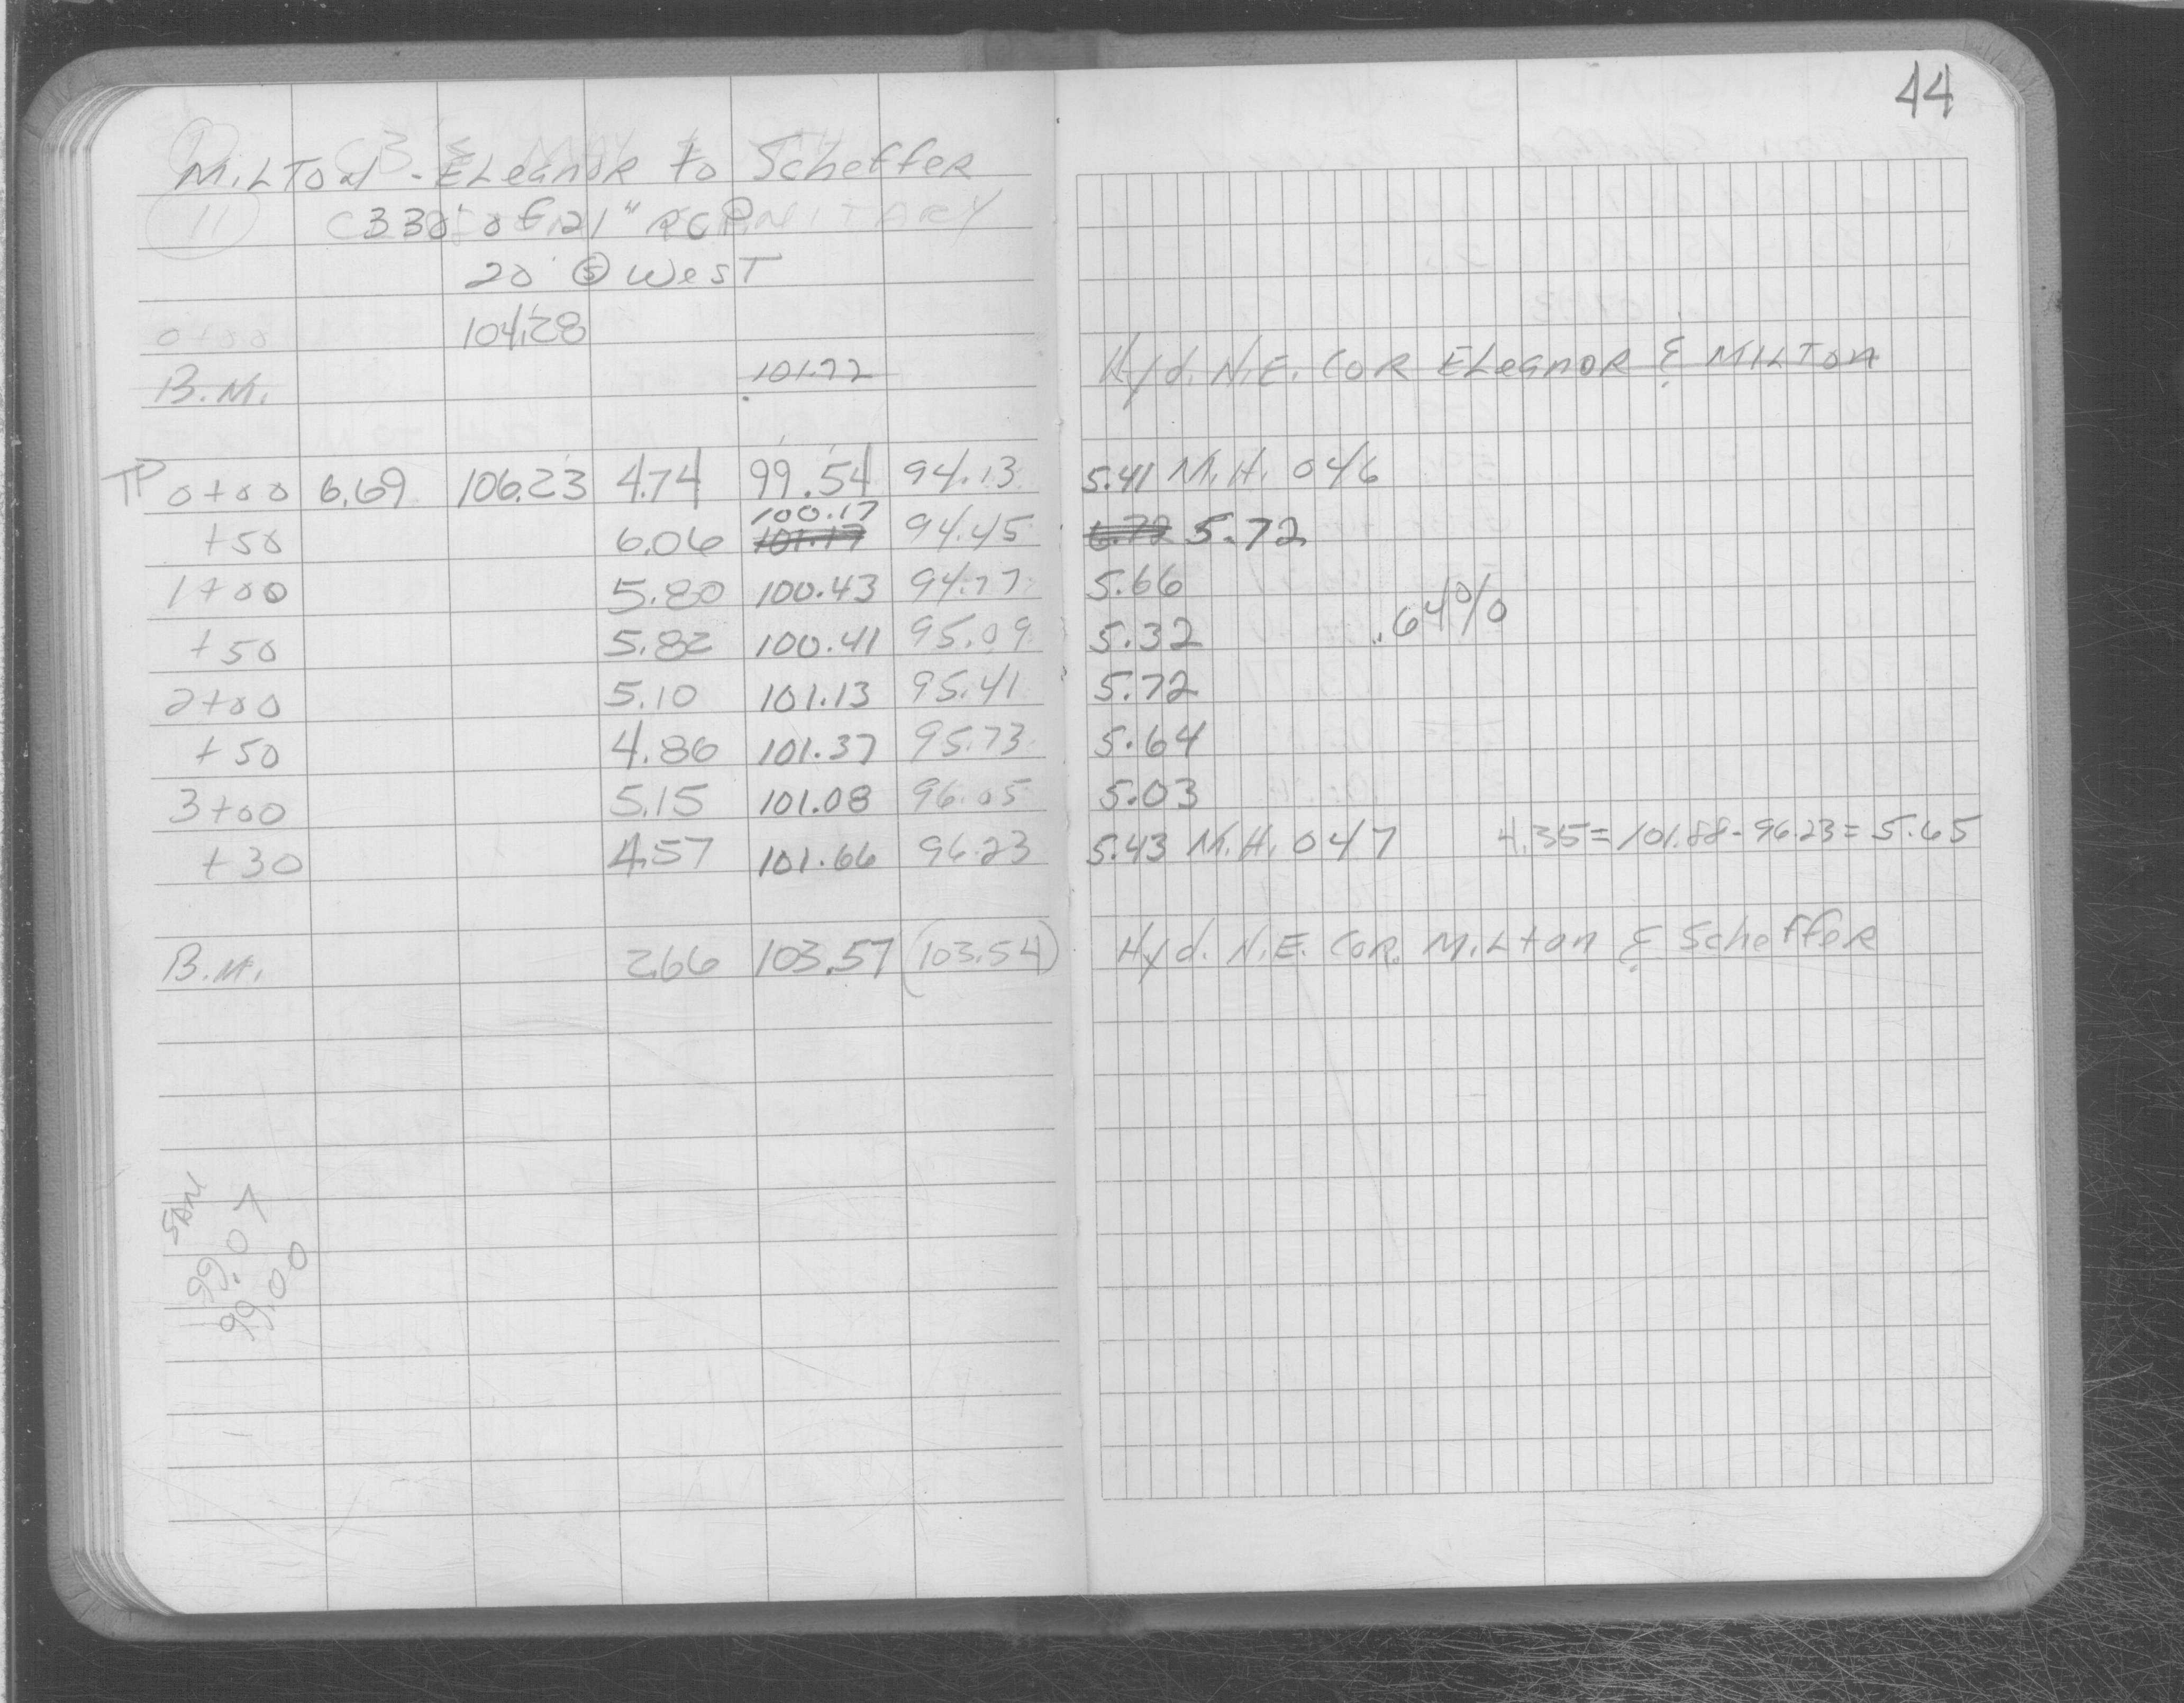 44
MILTON - ELeanoR to Scheffer
330' of 21" RCP
20' Ⓢ West
0+00 104.28
B.M. 101.72 Hyd. N.E. COR ELeanoR & MILTON
TP 0+00 6.69 106.23 4.74 99.54 94.13 5.41 M.H. 046
100.17
+50 6.06 101.17 94.45 6.72 5.72
1+00 5.80 100.43 94.77 5.66
.64%
+50 5.82 100.41 95.09 5.32
2+00 5.10 101.13 95.41 5.72
+50 4.86 101.37 95.73 5.64
3+00 5.15 101.08 96.05 5.03
+30 4.57 101.66 96.23 5.43 M.H. 047 4.35 = 101.88 - 96.23 = 5.65
B.M. 2.66 103.57 (103.54) Hyd. N.E. COR. MILton & Scheffer
SAN
99.07
99.00